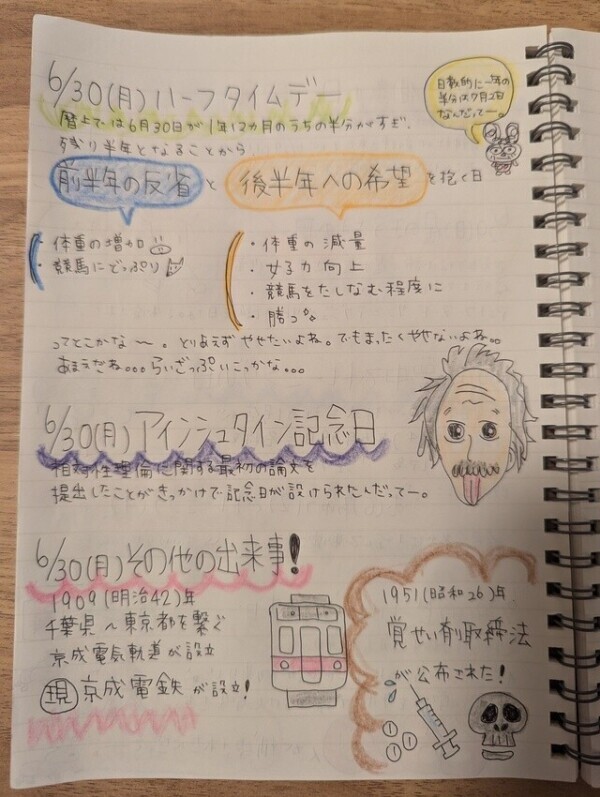 6/30(月)ハーフタイムデー
日数的に一年の
半分は7月2日
なんだってー。
暦上では6月30日が1年12カ月のうちの半分がすぎ、
残り半年となることから
前半年の反省 と 後半年への希望 を抱く日
・体重の増加
・競馬にどっぷり
・体重の減量
・女子力向上
・競馬をたしなむ程度に
・勝つ
ってとこかな〜。とりあえずやせたいよね。でもまったくやせないよね。。
あまえだね。。。らいざっぷいこっかな。。。
6/30(月)アインシュタイン記念日
相対性理倫に関する最初の論文を
提出したことがきっかけで記念日が設けられたんだってー。
6/30(月)その他の出来事!
1909(明治42)年
千葉県〜東京都を繋ぐ
京成電気軌道が設立
現 京成電鉄が設立!
1951(昭和26)年
覚せい剤取締法
が公布された!